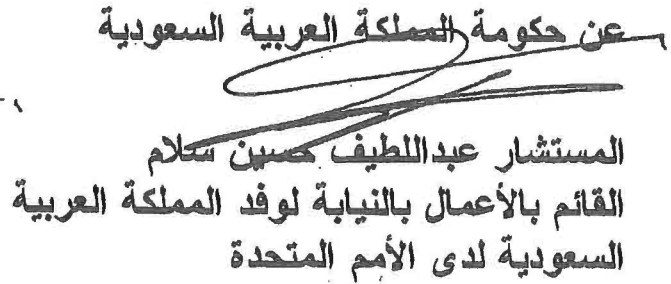 عن حكومة المملكة العربية السعودية
المستشار عبداللطيف حسين سلام
القائم بالأعمال بالنيابة لوفد المملكة العربية
السعودية لدى الأمم المتحدة